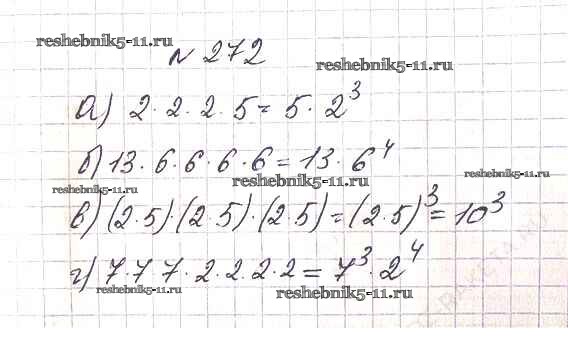 reshebnik5-11.ru
№ 272
reshebnik5-11.ru
а) 2·2·2·5=5·2³
б) 13·6·6·6·6=13·6⁴
reshebnik5-11.ru
reshebnik5-11.ru
reshebnik5-11.ru
в) (2·5)·(2·5)·(2·5)=(2·5)³=10³
г) 7·7·7·2·2·2·2=7³·2⁴
reshebnik5-11.ru
reshebnik5-11.ru